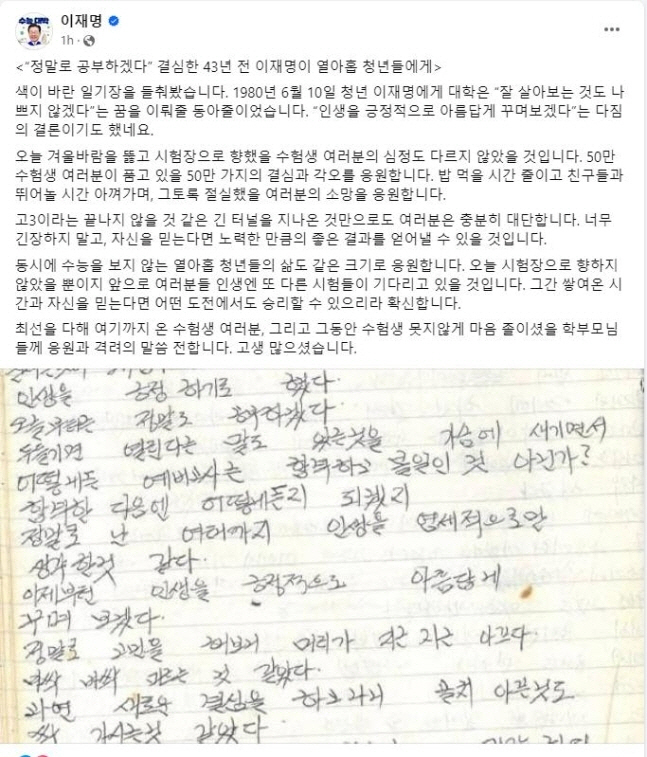 수능 대박
이재명
1h
<“정말로 공부하겠다” 결심한 43년 전 이재명이 열아홉 청년들에게>
색이 바란 일기장을 들춰봤습니다. 1980년 6월 10일 청년 이재명에게 대학은 “잘 살아보는 것도 나
쁘지 않겠다”는 꿈을 이뤄줄 동아줄이었습니다. “인생을 긍정적으로 아름답게 꾸며보겠다”는 다짐
의 결론이기도 했네요.
오늘 겨울바람을 뚫고 시험장으로 향했을 수험생 여러분의 심정도 다르지 않았을 것입니다. 50만
수험생 여러분이 품고 있을 50만 가지의 결심과 각오를 응원합니다. 밥 먹을 시간 줄이고 친구들과
뛰어놀 시간 아껴가며, 그토록 절실했을 여러분의 소망을 응원합니다.
고3이라는 끝나지 않을 것 같은 긴 터널을 지나온 것만으로도 여러분은 충분히 대단합니다. 너무
긴장하지 말고, 자신을 믿는다면 노력한 만큼의 좋은 결과를 얻어낼 수 있을 것입니다.
동시에 수능을 보지 않는 열아홉 청년들의 삶도 같은 크기로 응원합니다. 오늘 시험장으로 향하지
않았을 뿐이지 앞으로 여러분들 인생엔 또 다른 시험들이 기다리고 있을 것입니다. 그간 쌓여온 시
간과 자신을 믿는다면 어떤 도전에서도 승리할 수 있으리라 확신합니다.
최선을 다해 여기까지 온 수험생 여러분, 그리고 그동안 수험생 못지않게 마음 졸이셨을 학부모님
들께 응원과 격려의 말씀 전합니다. 고생 많으셨습니다.
인생을 긍정 하기로 했다.
오늘부터는 정말로 공부하겠다.
두들기면 열린다는 말도 있는것을 가슴에 새기면서
어떻게든 예비고사는 합격하고 볼일인 것 아닌가?
합격한 다음엔 어떻게든지 되겠지
정말로 난 여태까지 인생을 염세적으로만
생각 한것 같다.
이제부턴 인생을 긍정적으로 아름답게
꾸며 보겠다.
정말로 고민을 해보니 머리가
바싹 바싹 마르는 것 같았다.
과연 새로운 결심을 하고나니 골치 아픈것도
싹 가시는것 같았다.